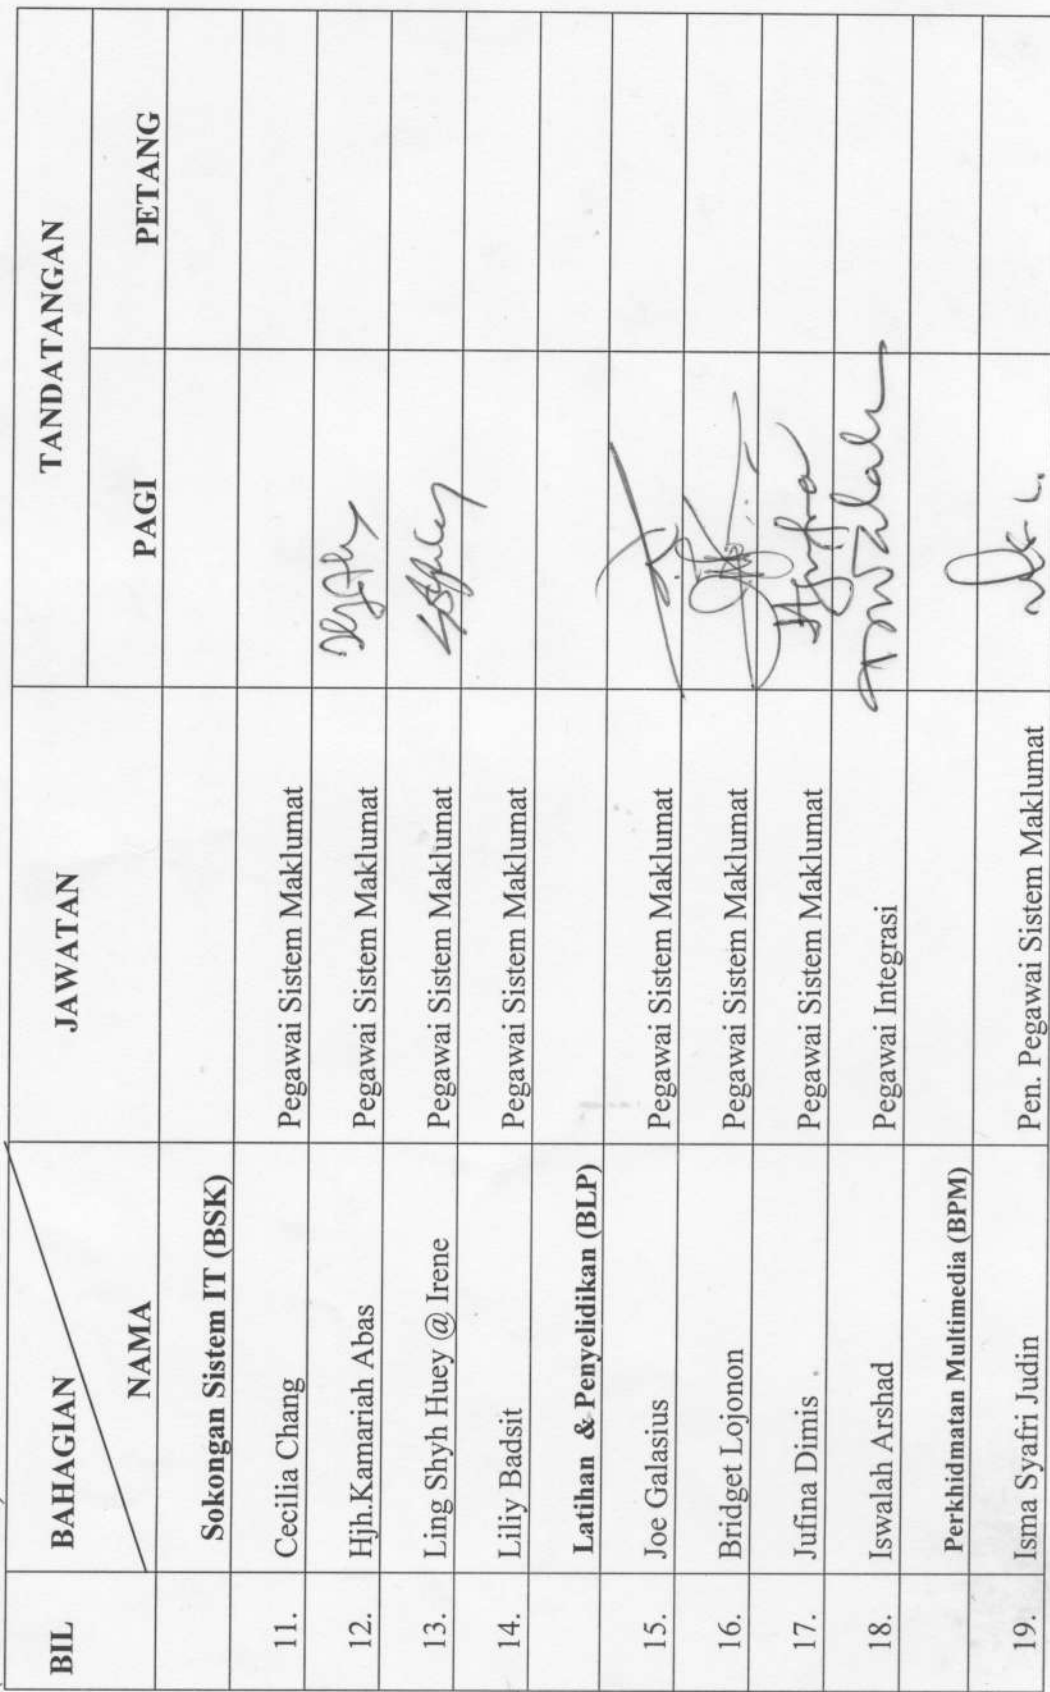 BIL BAHAGIAN JAWATAN TANDATANGAN
NAMA PAGI PETANG
Sokongan Sistem IT (BSK)
11. Cecilia Chang Pegawai Sistem Maklumat
12. Hjh.Kamariah Abas Pegawai Sistem Maklumat
13. Ling Shyh Huey @ Irene Pegawai Sistem Maklumat
14. Liliy Badsit Pegawai Sistem Maklumat
Latihan & Penyelidikan (BLP)
15. Joe Galasius Pegawai Sistem Maklumat
16. Bridget Lojonon Pegawai Sistem Maklumat
17. Jufina Dimis Pegawai Sistem Maklumat
18. Iswalah Arshad Pegawai Integrasi
Perkhidmatan Multimedia (BPM)
19. Isma Syafri Judin Pen. Pegawai Sistem Maklumat